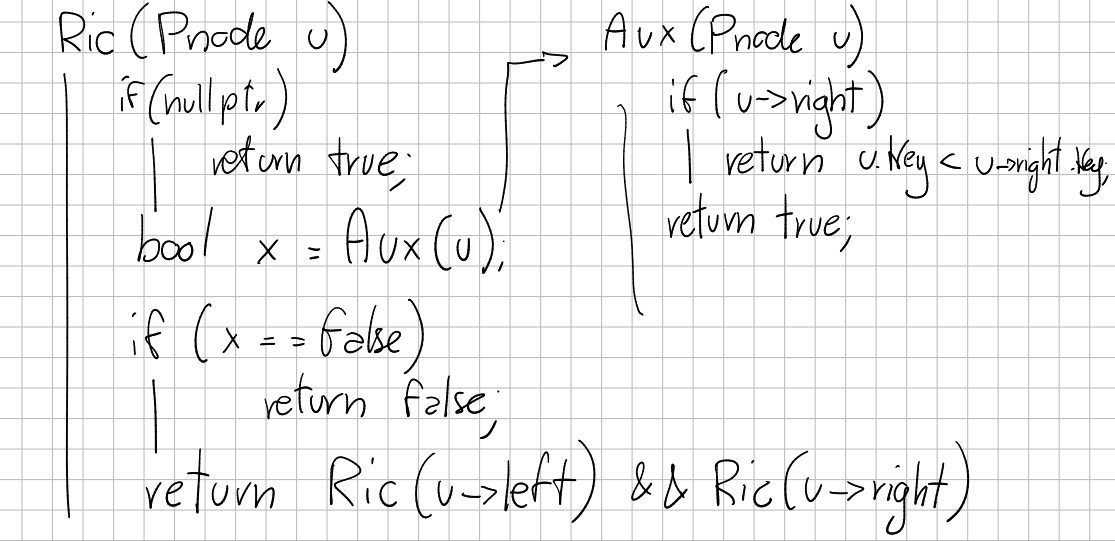 Ric (Pnode u)
if (nullptr)
return true;
bool x = Aux(u);
if (x == false)
return false;
return Ric(u->left) && Ric(u->right)
Aux(Pnode u)
if (u->right)
return u.key < u->right.key;
return true;